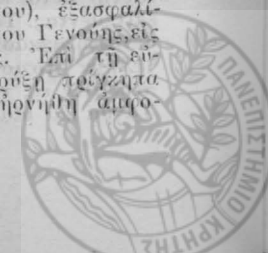 ου), ἐξασφαλί-
ου Γενούης, εἰς
. Ἐπὶ τῇ εὐ-
ρύξῃ πρίγκηπα
ἠρνήθη ἀμφο-
ΠΑΝΕΠΙΣΤΗΜΙΟ ΚΡΗΤΗΣ